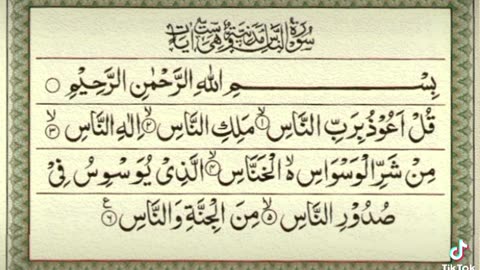 سُوْرَةُ النَّاسِ مَدَنِيَّةٌ وَّهِىَ سِتُّ اٰيَاتٍ
بِسْمِ اللهِ الرَّحْمٰنِ الرَّحِيْمِ ○
قُلْ اَعُوْذُ بِرَبِّ النَّاسِ ۙ﴿۱﴾ مَلِكِ النَّاسِ ۙ﴿۲﴾ اِلٰهِ النَّاسِ ۙ﴿۳﴾
مِنْ شَرِّ الْوَسْوَاسِ ۵ۙ الْخَنَّاسِ ۙ﴿۴﴾ الَّذِىْ يُوَسْوِسُ فِىْ
صُدُوْرِ النَّاسِ ۙ﴿۵﴾ مِنَ الْجِنَّةِ وَالنَّاسِ ﴿۶﴾ ع
TikTok